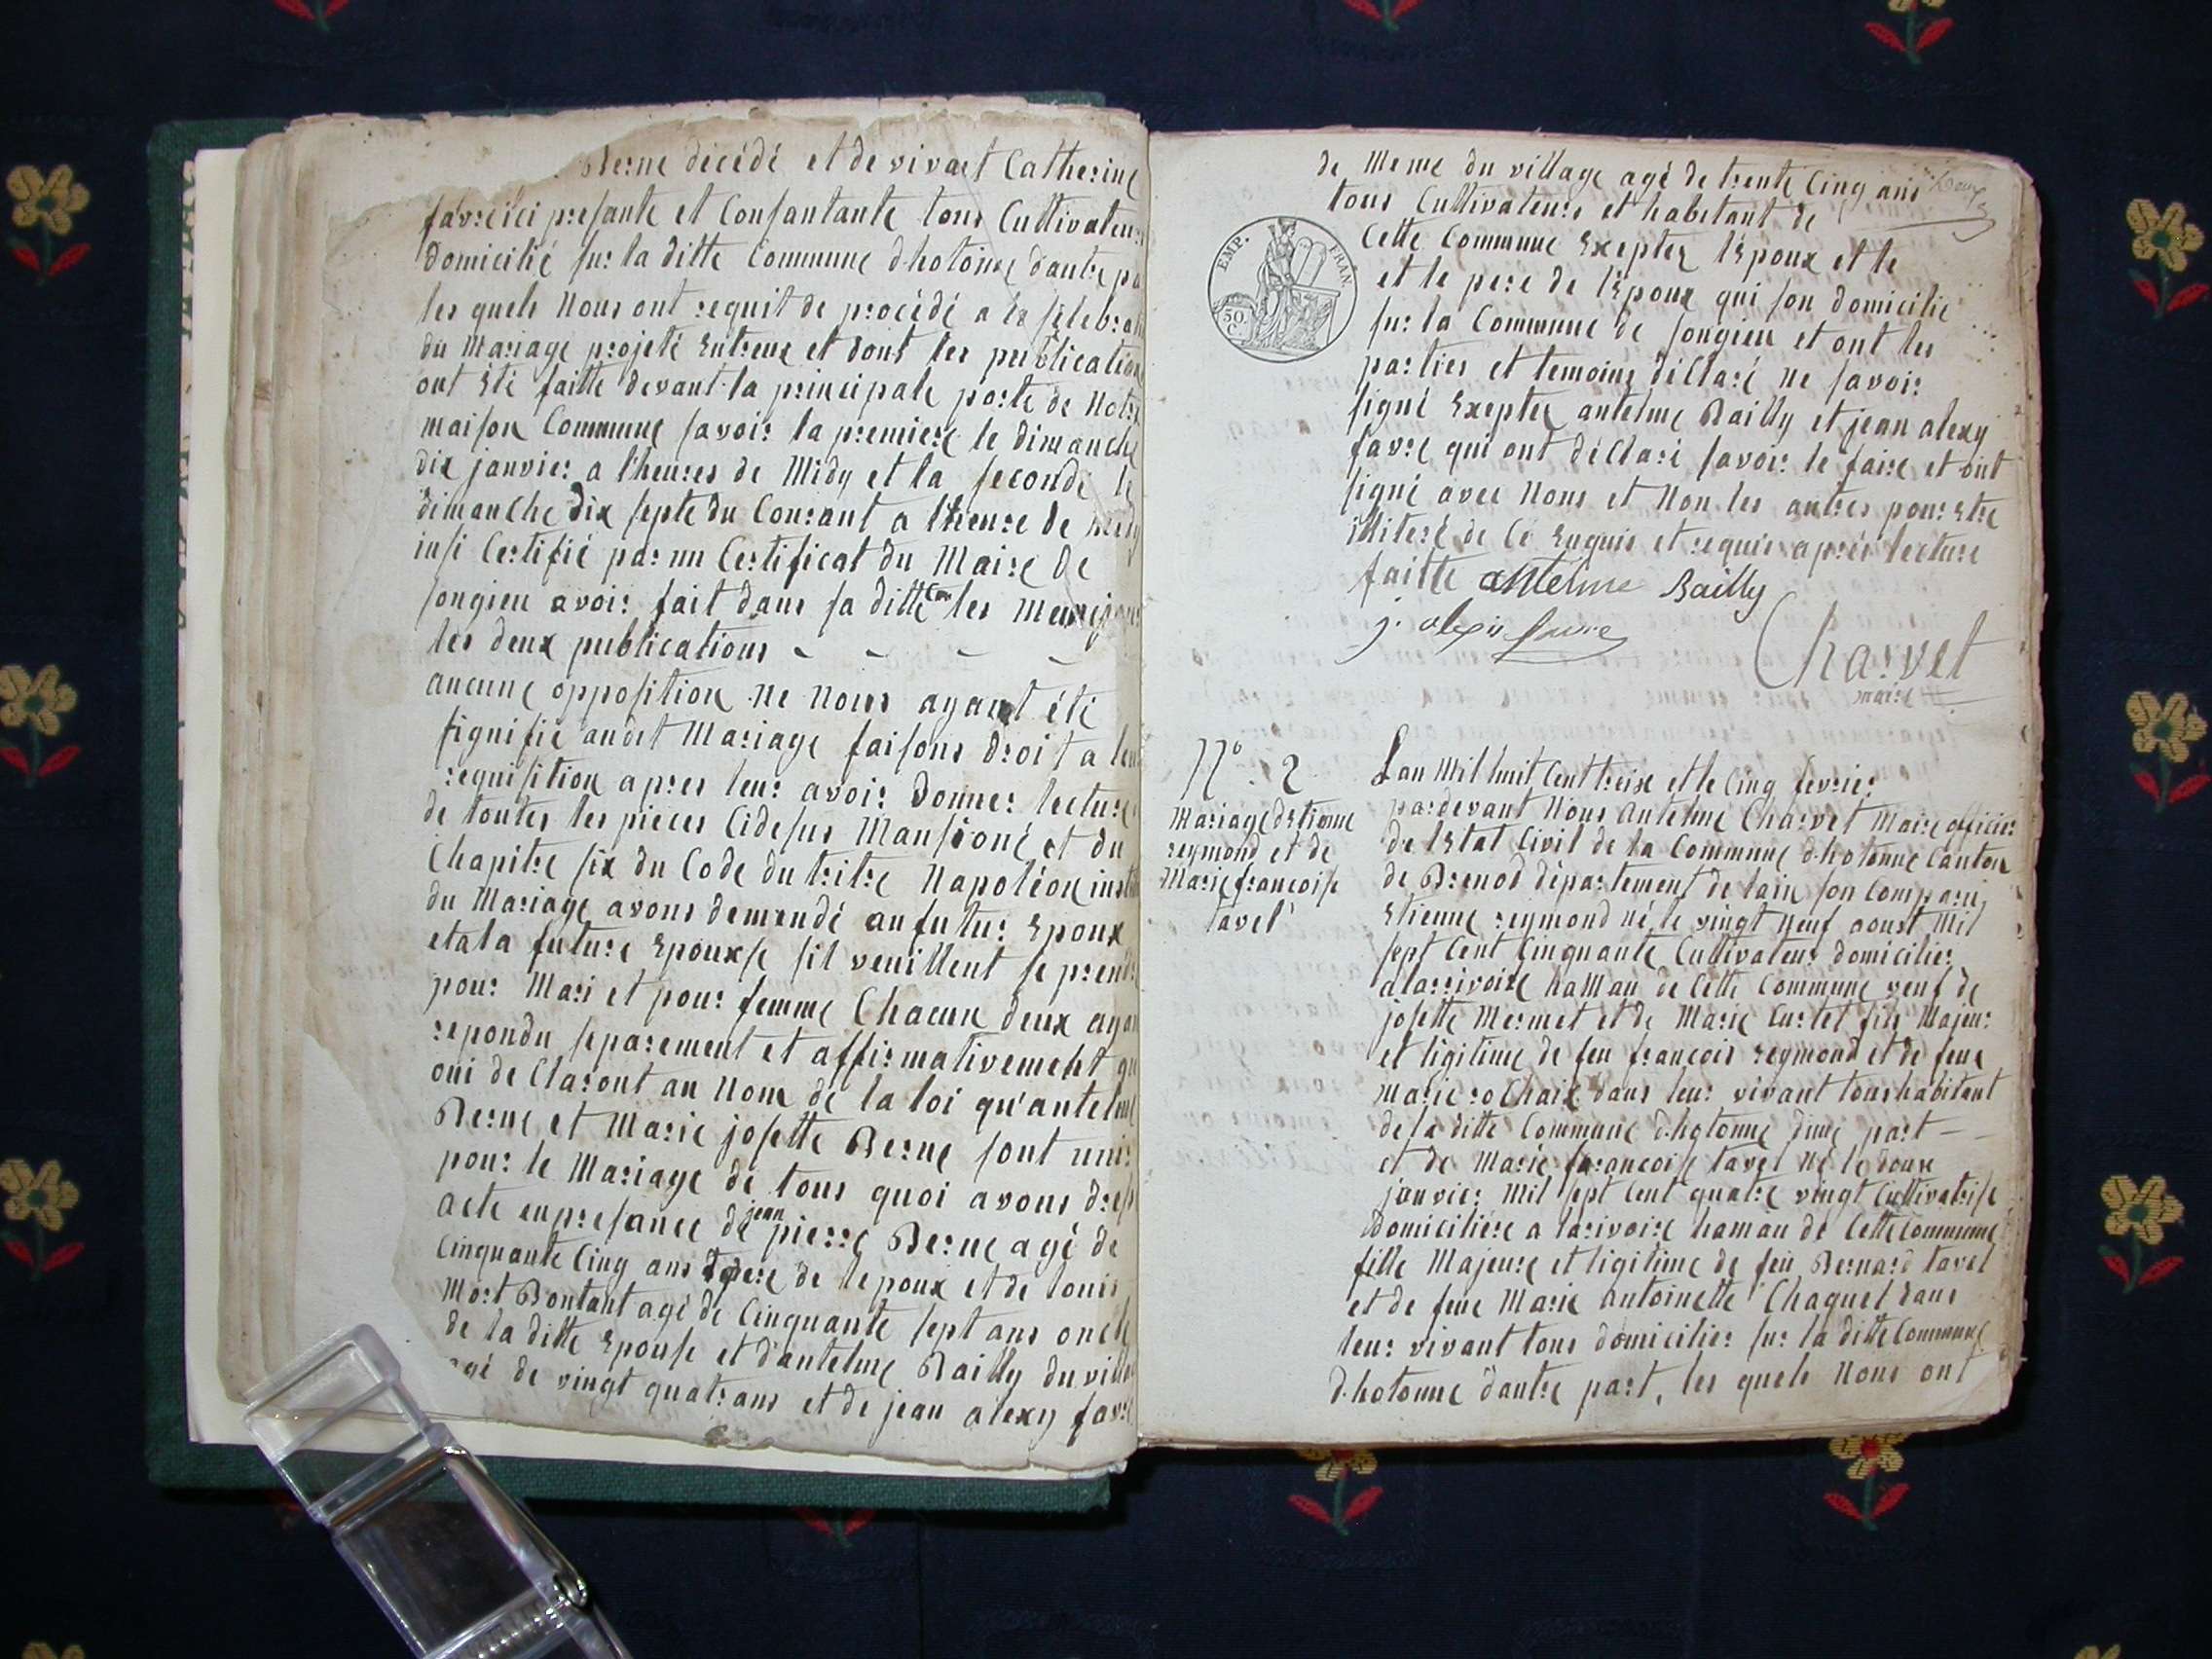 Berne décédé et de vivant Catherine
favre ici presante et Consantante tous Cultivateurs
domicilié sur la ditte Commune d'hotonne dautre pa
les quels Nous ont requit de procédé a la selebrati
du Mariage projeté Entreux et dont les publication
ont été faitte devant la principale porte de Notre
maison Commune savoir la premiere le dimanche
dix janvier a l'heures de Midy et la seconde le
dimanche dix septe du Courant a l'heure de midy
insi Certifié par un Certificat du Maire De
songieu avoir fait dans sa ditte Cne les meme jours
les deux publications - - - -
aucune opposition ne nous ayant été
signifie audit Mariage faisons droit a leur
requisition apres leur avoir donner lecture
de toutes les pieces Cidesus Mansioné et du
Chapitre six du Code du tritre Napoléon instit
du Mariage avons demendé au futur Epoux
et a la future Epouxse sil veuillent se prendr
pour Mari et pour femme Chacun deux ayan
repondu separement et affirmativement qu
oui de Claront au Nom de la loi qu'antelme
Berne et Marie josette Berne sont unis
pour le Mariage de tous quoi avons dress
acte en presance de jean pierre Berne agé de
Cinquante Cinq ans pere de lepoux et de louis
Mort Bontant agé de Cinquante sept ans oncle
de la ditte Epouse et d'antelme Bailly du villa
agé de vingt quatr ans et de jean alexy favre
de Meme du village agé de trente Cinq ans
tous Cultivateurs et habitant de
Cette Commune Exeptez lEpoux et le
et le pere de lEpoux qui son domicilie
sur la Commune de songieu et ont les
parties et temoins déClaré ne savoir
signé Exeptee antelme Bailly et jean alexy
favre qui ont déClaré savoir le faire et ont
signé avec Nous et Non les autres pour Etre
illiteré de Ce Enquis et requis aprés lecture
faitte antelme Bailly
j. alexis favre
Charvet
maire
EMP. FRAN.
50 C.
No. 2
Mariage dEtienne
reymond et de
Marie francoise
tavel
Lan Mil huit Cent treize et le Cinq fevrier
pardevant Nous antelme Charvet Maire officier
de lEtat Civil de la Commune d'hotonne Canton
de Brenod département de lain son Comparu
Etienne reymond né le vingt Neuf aoust Mil
sept Cent Cinquante Cultivateur domicilier
a larrivoire hamau de Cette Commune veuf de
josette Mermet et de Marie Curtet fils Majeur
et ligitime de feu francois reymond et de feue
Marie roChaix dans leur vivant tous habitant
de la ditte Commune d'hotonne dune part —
et de Marie francoise tavel Né le douze
janvier Mil sept Cent quatre vingt Cultivatrise
domiciliére a larivoire hamau de Cette Commune
fille Majeure et ligitime de feu Bernard tavel
et de feue Marie antoinette Chaquet dans
leur vivant tous domicilier sur la ditte Commune
d'hotonne dautre part, les quels Nous ont